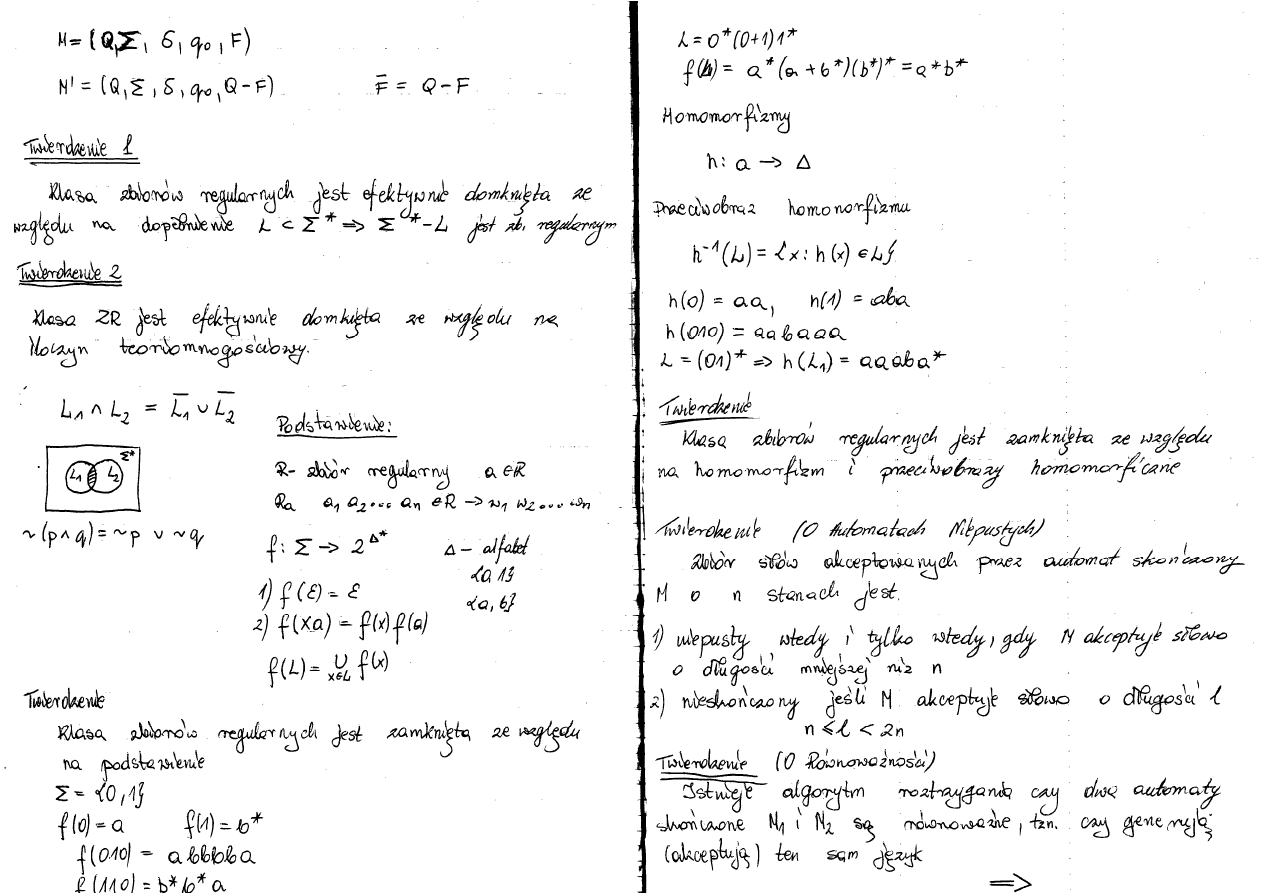 M = (Q, Σ, δ, q₀, F)
M' = (Q, Σ, δ, q₀, Q-F) F̅ = Q-F
Twierdzenie 1
Klasa zbiorów regularnych jest efektywnie domknięta ze
względu na dopełnienie L ⊂ Σ* ⇒ Σ*-L jest zb. regularnym
Twierdzenie 2
Klasa ZR jest efektywnie domknięta ze względu na
iloczyn teoriomnogościowy.
L₁ ∩ L₂ = L̅₁ ∪ L̅₂
L₁ L₂ Σ*
~(p ∧ q) = ~p ∨ ~q
Podstawienie:
R- zbiór regularny a ∈ R
Ra a₁ a₂ ... aₙ ∈ R → w₁ w₂ ... wₙ
f: Σ → 2^Δ* Δ - alfabet
{0,1}
1) f(ε) = ε {a,b}
2) f(xa) = f(x) f(a)
f(L) = ∪ x∈L f(x)
Twierdzenie
Klasa zbiorów regularnych jest zamknięta ze względu
na podstawienie
Σ = {0,1}
f(0) = a f(1) = b*
f(010) = abbbba
f(110) = b* b* a
L = 0*(0+1)1*
f(L) = a*(a+b*)(b*)* = a*b*
Homomorfizmy
h: a → Δ
Przeciwobraz homonorfizmu
h⁻¹(L) = {x: h(x) ∈ L}
h(0) = aa, h(1) = aba
h(010) = aabaaa
L = (01)* ⇒ h(L₁) = aaaba*
Twierdzenie
Klasa zbiorów regularnych jest zamknięta ze względu
na homomorfizm i przeciwobrazy homomorficzne
Twierdzenie (O Automatach Niepustych)
Zbiór słów akceptowanych przez automat skończony
M o n stanach jest.
1) niepusty wtedy i tylko wtedy, gdy M akceptuje słowo
o długości mniejszej niż n
2) nieskończony jeśli M akceptuje słowo o długości l
n ≤ l < 2n
Twierdzenie (O Równoważności)
Istnieje algorytm roztrzygania czy dwa automaty
skończone M₁ i M₂ są równoważne, tzn. czy generują
(akceptują) ten sam język
⇒